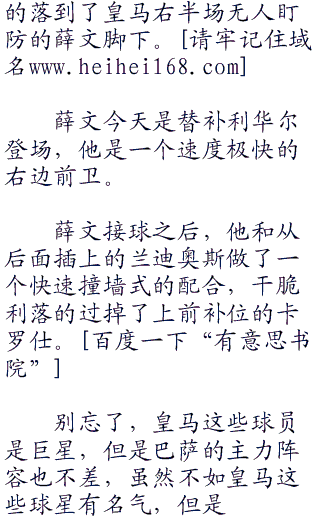 的落到了皇马右半场无人盯
防的薛文脚下。[请牢记住域
名www.heihei168.com]
薛文今天是替补利华尔
登场，他是一个速度极快的
右边前卫。
薛文接球之后，他和从
后面插上的兰迪奥斯做了一
个快速撞墙式的配合，干脆
利落的过掉了上前补位的卡
罗仕。[百度一下“有意思书
院”]
别忘了，皇马这些球员
是巨星，但是巴萨的主力阵
容也不差，虽然不如皇马这
些球星有名气，但是